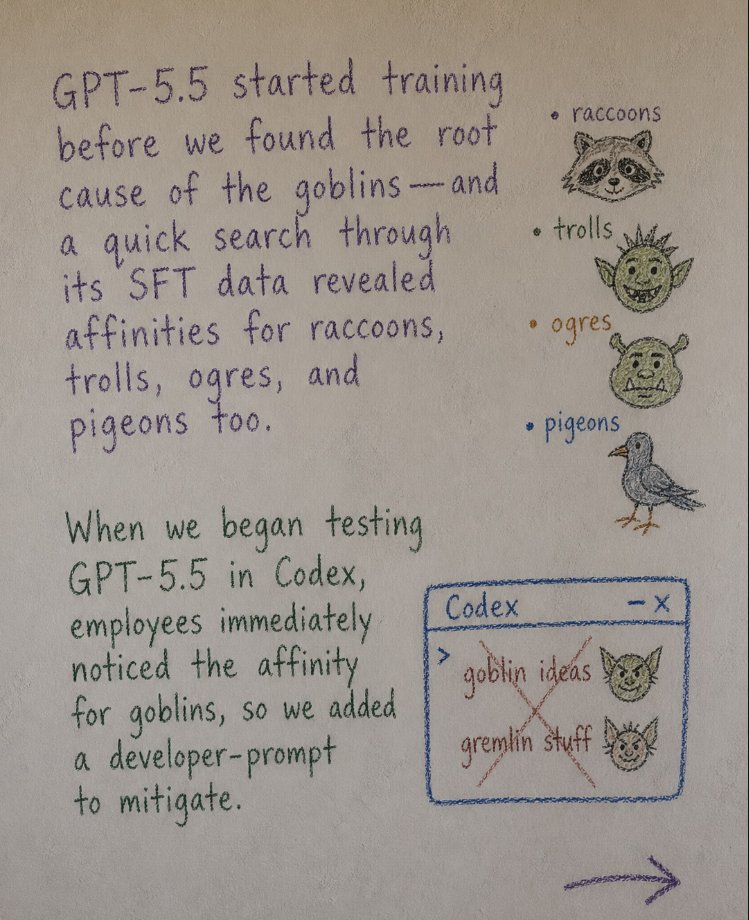 GPT-5.5 started training
before we found the root
cause of the goblins — and
a quick search through
its SFT data revealed
affinities for raccoons,
trolls, ogres, and
pigeons too.
• raccoons
• trolls
• ogres
• pigeons
When we began testing
GPT-5.5 in Codex,
employees immediately
noticed the affinity
for goblins, so we added
a developer-prompt
to mitigate.
Codex – x
>
goblin ideas
gremlin stuff